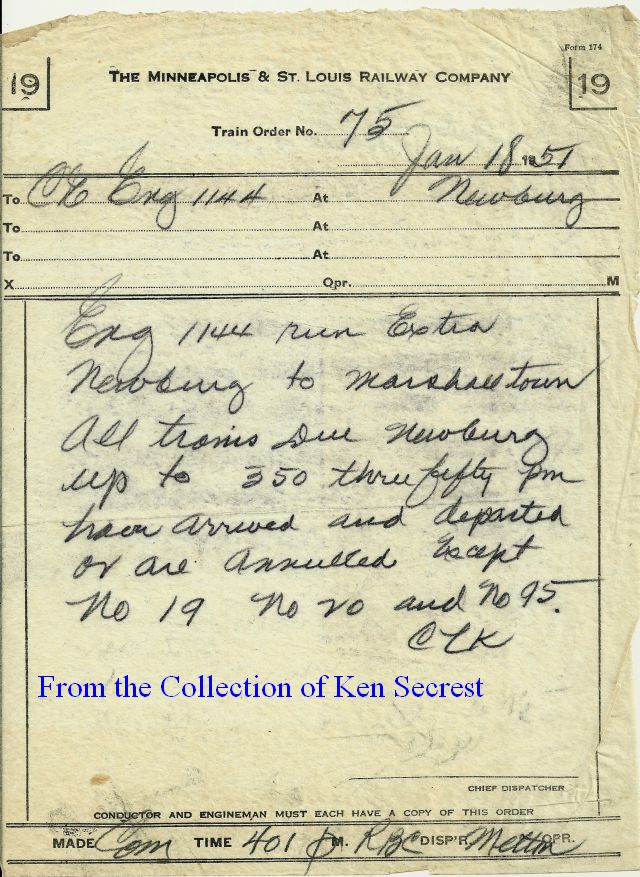 Form 174
19 THE MINNEAPOLIS & ST. LOUIS RAILWAY COMPANY 19
Train Order No. 75
Jan 18 1951
To C&E Eng 1144 At Newburg
To At
To At
X Opr. M
Eng 1144 run Extra
Newburg to Marshalltown
All trains Due Newburg
up to 350 three fifty pm
have arrived and departed
or are annulled Except
No 19 No 20 and No 95.
CLK
From the Collection of Ken Secrest
CHIEF DISPATCHER
CONDUCTOR AND ENGINEMAN MUST EACH HAVE A COPY OF THIS ORDER
MADE Com TIME 401 P M. RBC DISP'R OPR.